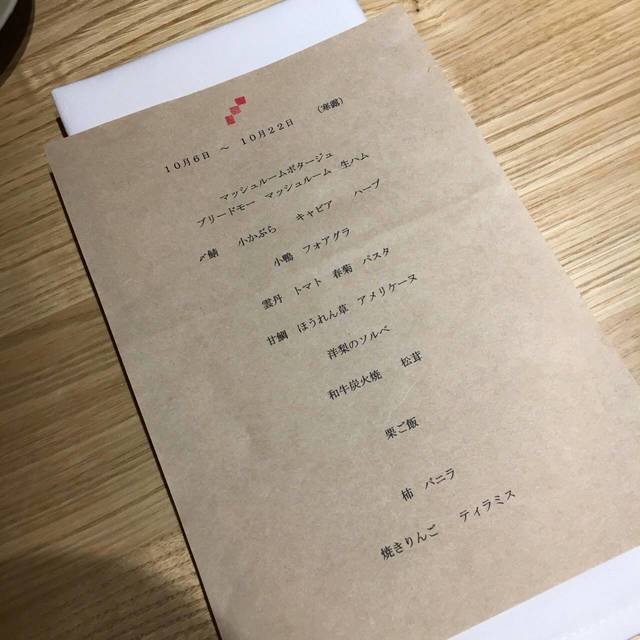 10月6日 ～ 10月22日 (寒露)
マッシュルームポタージュ
ブリードモー マッシュルーム 生ハム
〆鯖 小かぶら キャビア ハーブ
小鴨 フォアグラ
雲丹 トマト 春菊 パスタ
甘鯛 ほうれん草 アメリケーヌ
洋梨のソルベ
和牛炭火焼 松茸
栗ご飯
柿 バニラ
焼きりんご ティラミス